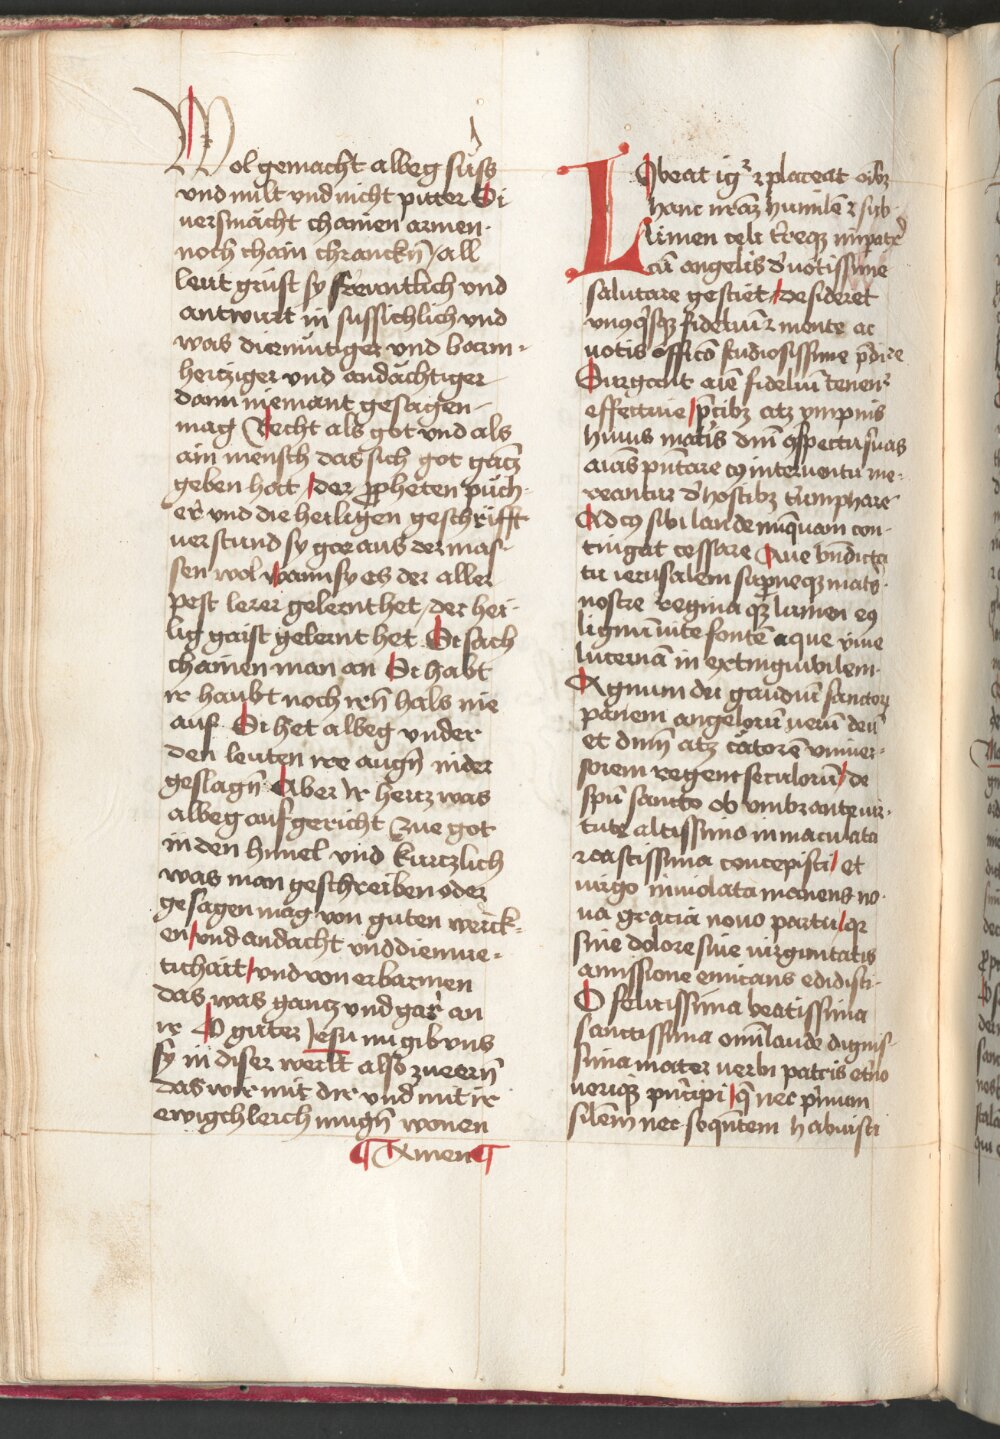 Wol gemacht albeg suͤss
und milt und nicht pitter Si
versmächt chainen armen
noch chain chranckn̄ / all
leut grüst sy freuntlich und
antwurt in sussichlich und
was diemuͤtiger und barm-
hercziger und andächtiger
dann niemant gesagen
mag Recht als got und als
ain mensch das sich got gancz
geben hat / der propheten puͤch-
er und die heiligen geschrifft
verstund sy gar aus der mas-
sen wol / wann sy es der aller
pest lerer gelernt het / der hei-
lig gaist gelernt het Si sach
chainen man an Si habt
ir haubt noch irn̄ hals nie
auf Si het albeg under
den leuten ire augn̄ nider
geslagn̄ Aber Ir hertz was
albeg auf gericht zue got
in den himel und kurczlich
was man geschreiben oder
gesagen mag von guten werck-
en / und andacht und diemue-
tichait / und von erbarmen
das was gancz und gar an
ir O guter Jesu nu gib uns
sy in diser werlt also zu eern̄
das wir mit dir und mit ir
ewigchleich mugn̄ wonen
¶ Amen ¶
LIbeat igr̄ ⁊ placeat oībꝫ
hanc nrāꝫ humilē ⁊ sub-
limen celi tr̄reqꝫ impatͥcē
cū angelis d'uotissime
salutare gestiet / desideret
unꝰqͥsqꝫ fideliū ⁊ mente ac
votis officō studiosissime p̄dic̄e
Surgant aīe fideliū tenenꝰ
effectiue / p̄cibꝫ atqꝫ ympnis
huius matis dnī ꝯspectui suas
aīas p̄ntare cꝰ interuentu me-
reantur d' hostibꝫ tͥumphare
Ad cꝰ sibi laude nūquam con-
tingat cessare Aue bn̄dicta
tu ierusalem sup̄neqꝫ mat̄s
nostre regina que lumen eꝰ
lignū vite fontē aque viue
lucernā in extinguibilem
Agnum dei gaudiū sanctoꝝ
panem angelorū verū deū
et dnm̄ atqꝫ cāatorē vniuer-
sorem regem seculorū / de
spū sancto ob vmbrante vir-
tute altissimo inmaculata
⁊ castissima concepisti / et
virgo inuiolata manens no-
ua gracia nouo partu / qꝛ
sine dolore sine virginitatis
amissione emicans edidisti
O felicissima beatissima
sanctissima omī laude dignis-
sima mater verbi patris et̄no
verique p̄ncipi / q̄ nec p̄mam
silem̄ nec seq̄ntem habuisti